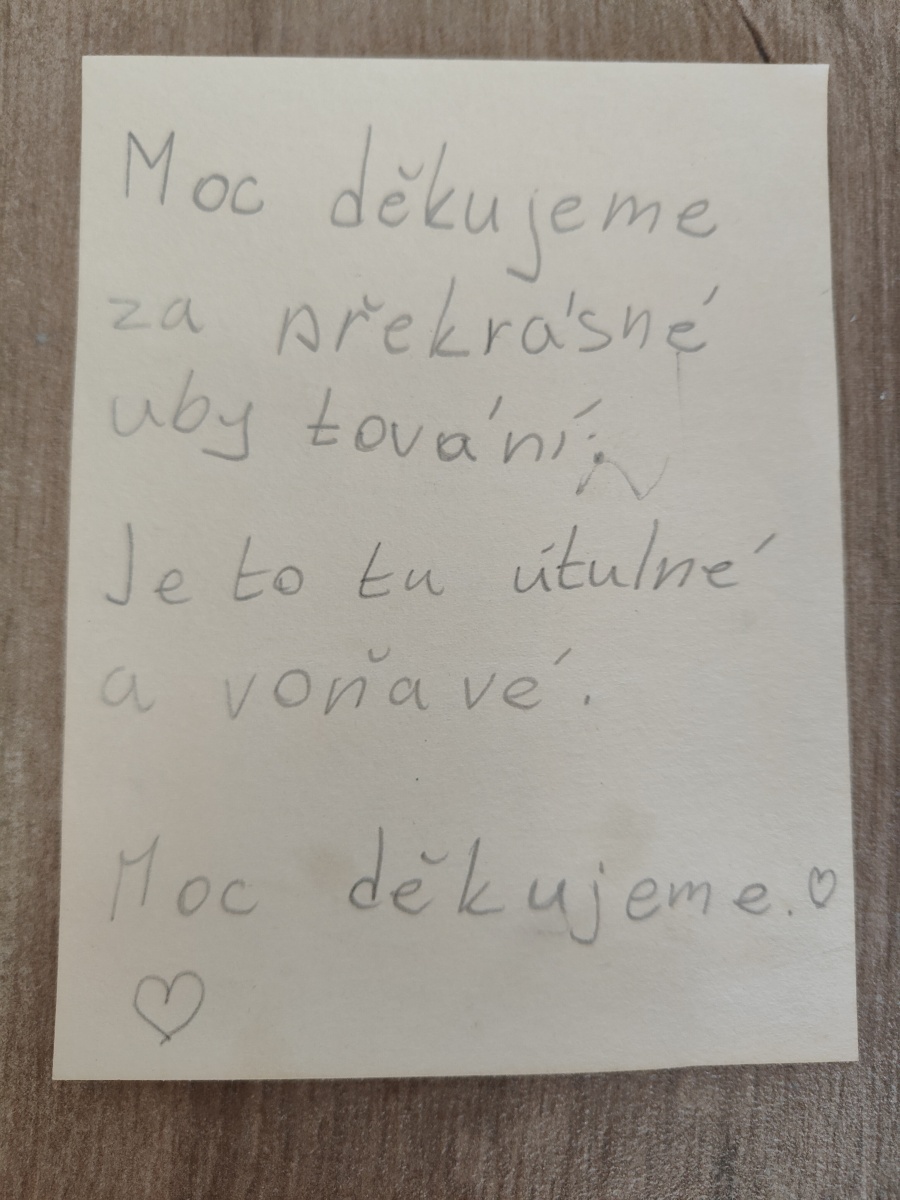 Moc děkujeme
za překrásné
ubytování.
Je to tu útulné
a voňavé.
Moc děkujeme.♡
♡